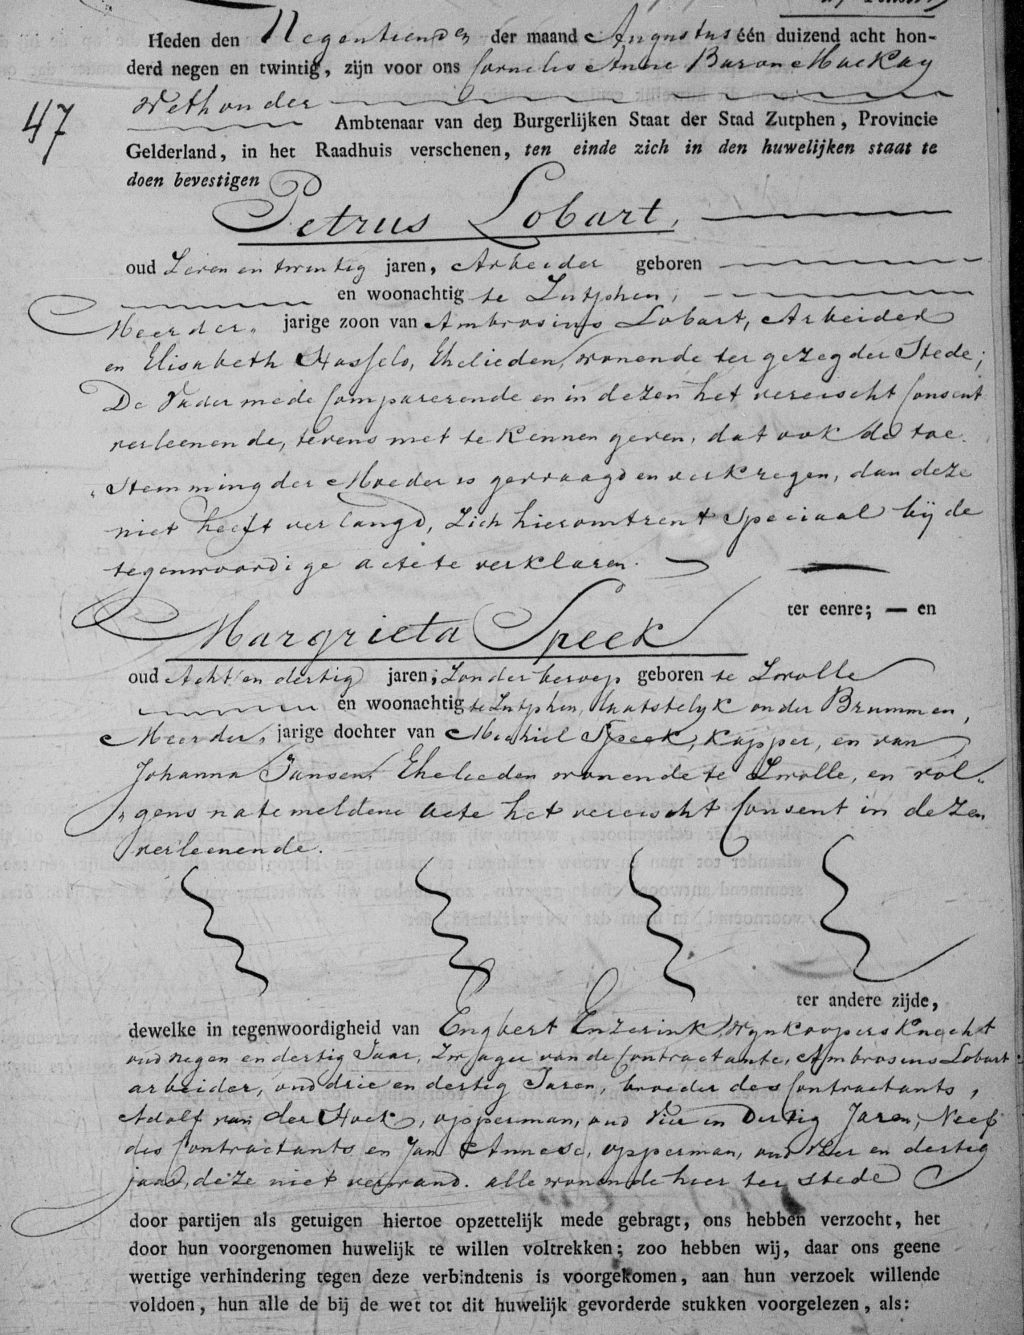 Heden den Negentienden der maand Augustus één duizend acht hon-
derd negen en twintig, zijn voor ons Cornelis Anne Baron Mackay
Wethouder
47
Ambtenaar van den Burgerlijken Staat der Stad Zutphen, Provincie
Gelderland, in het Raadhuis verschenen, ten einde zich in den huwelijken staat te
doen bevestigen
Petrus Lobart,
oud Zeven en twintig jaren, Arbeider geboren
en woonachtig te Zutphen,
Meerder jarige zoon van Ambrosius Lobart, Arbeider
en Elisabeth Hassels, Ehelieden, wonende ter gezegder Stede;
De Vader mede Comparerende en in dezen het vereischt Consent
verleenende, tevens met te kennen geven, dat ook de toe-
stemming der Moeder is gevraagd en verkregen, dan deze
niet heeft verlangd, zich hieromtrent speciaal bij de
tegenwoordige acte te verklaren.
ter eenre; — en
Margrieta Speek
oud Acht en dertig jaren, Zonder beroep geboren te Zwolle
en woonachtig te Zutphen, laatstelyk onder Brummen,
Meerder jarige dochter van Michiel Speek, Kapper, en van
Johanna Jansen, Ehelieden wonende te Zwolle, en vol-
gens nate meldene Acte het vereischt Consent in dezen
verleenende.
ter andere zijde,
dewelke in tegenwoordigheid van Engbert Enzerink, Wynkoopers Knecht
oud negen en dertig Jaar, Zwager van de Contractante, Ambrosius Lobart
arbeider, oud drie en dertig Jaren, broeder des Contractants,
Adolf van der Hoek, opperman, oud Vier en Dertig Jaren, Neef
des Contractants en Jan Annese, opperman, oud Vier en dertig
jaar, deze niet verwand. alle wonende hier ter stede
door partijen als getuigen hiertoe opzettelijk mede gebragt, ons hebben verzocht, het
door hun voorgenomen huwelijk te willen voltrekken; zoo hebben wij, daar ons geene
wettige verhindering tegen deze verbindtenis is voorgekomen, aan hun verzoek willende
voldoen, hun alle de bij de wet tot dit huwelijk gevorderde stukken voorgelezen, als: